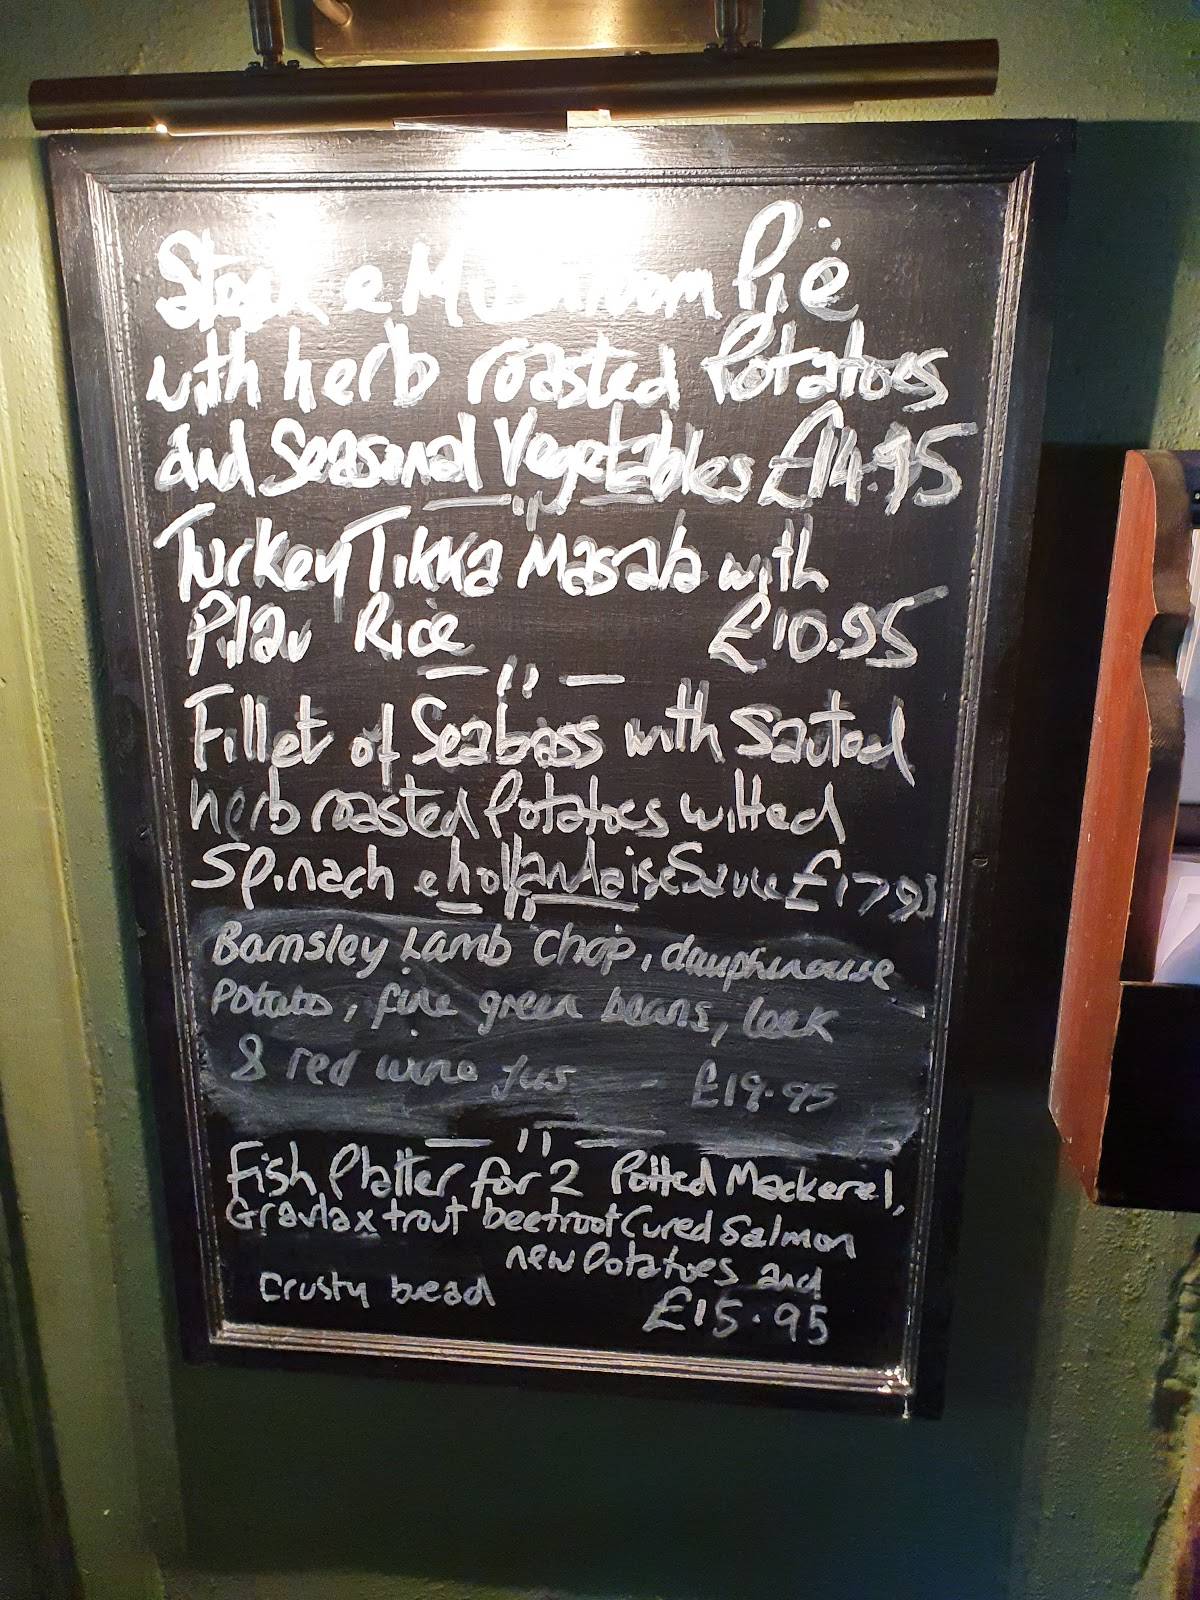 Steak e Mushroom Pie
with herb roasted Potatoes
and Seasonal Vegetables £14.95
Turkey Tikka Masala with
Pilau Rice £10.95
Fillet of Seabass with Sauteed
herb roasted Potatoes wilted
Spinach e hollandaise Sauce £17.95
Barnsley Lamb Chop, dauphinouse
Potato, fine green beans, leek
& red wine Jus £19.95
Fish Platter for 2 Potted Mackerel,
Gravlax trout beetroot Cured Salmon
new Potatoes and
Crusty bread £15.95